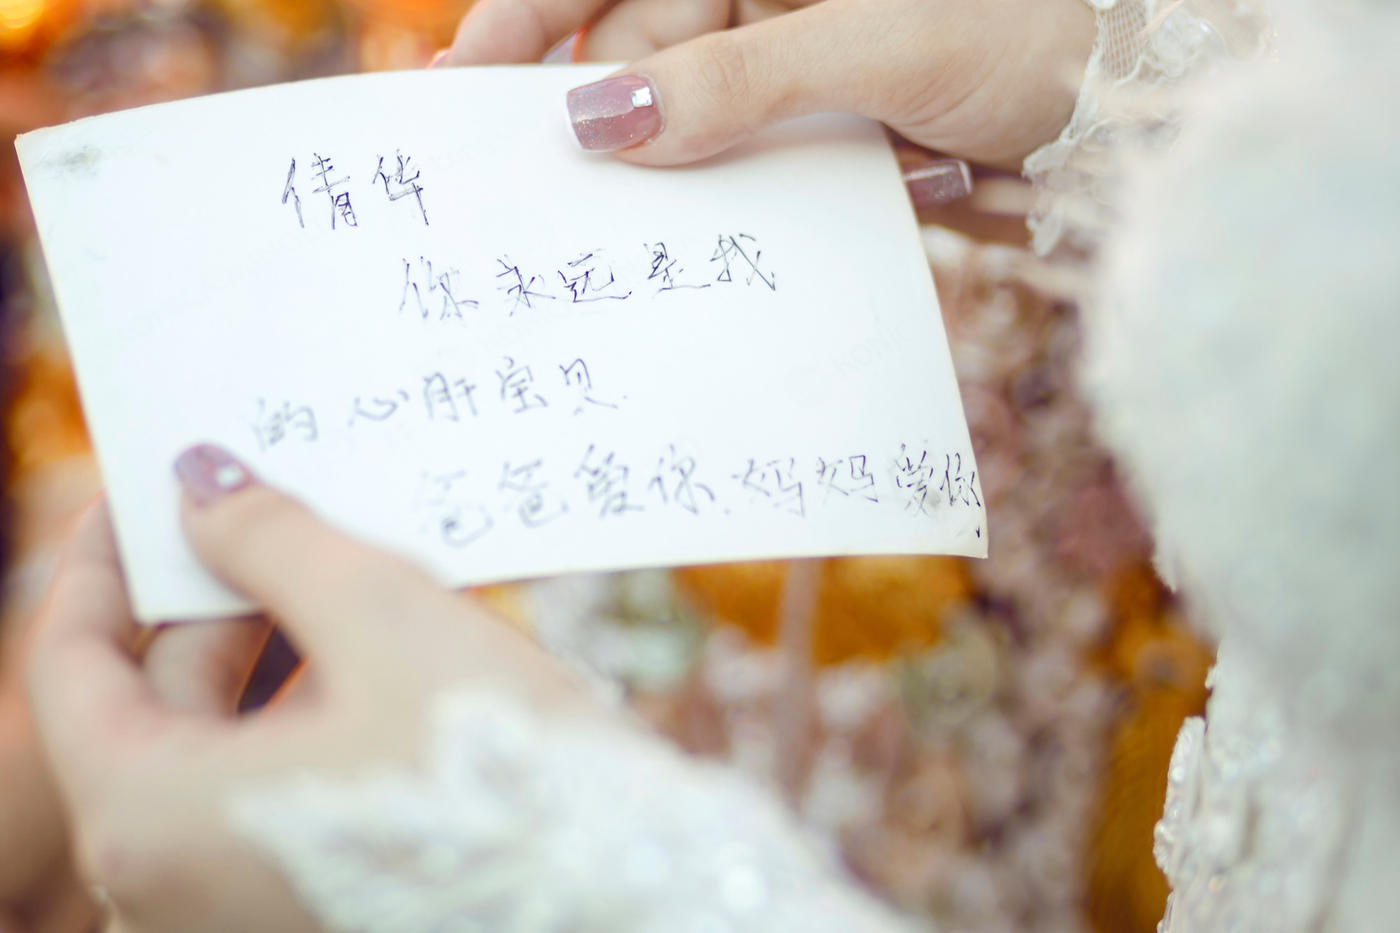 倩华
你永远是我
的心肝宝贝
爸爸爱你.妈妈爱你